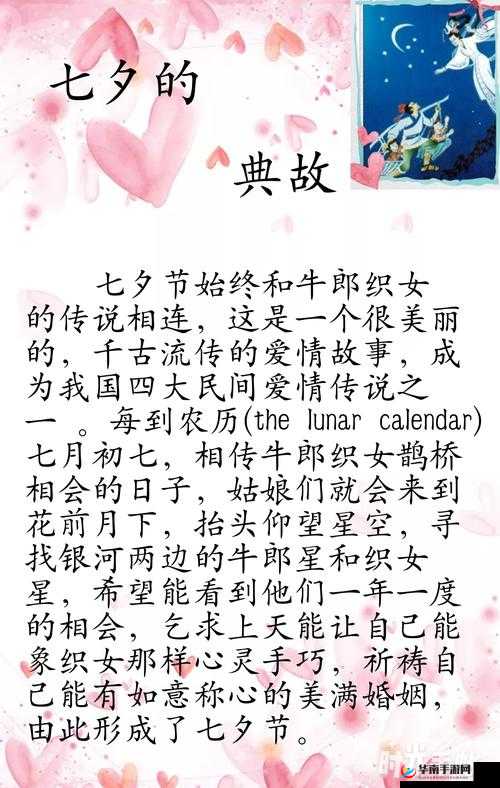 七夕的
典故
七夕节始终和牛郎织女
的传说相连，这是一个很美丽
的，千古流传的爱情故事，成
为我国四大民间爱情传说之
一 。每到农历(the lunar calendar)
七月初七，相传牛郎织女鹊桥
相会的日子，姑娘们就会来到
花前月下，抬头仰望星空，寻
找银河两边的牛郎星和织女
星，希望能看到他们一年一度
的相会，乞求上天能让自己能
象织女那样心灵手巧，祈祷自
己能有如意称心的美满婚姻，
由此形成了七夕节。
华南手游网